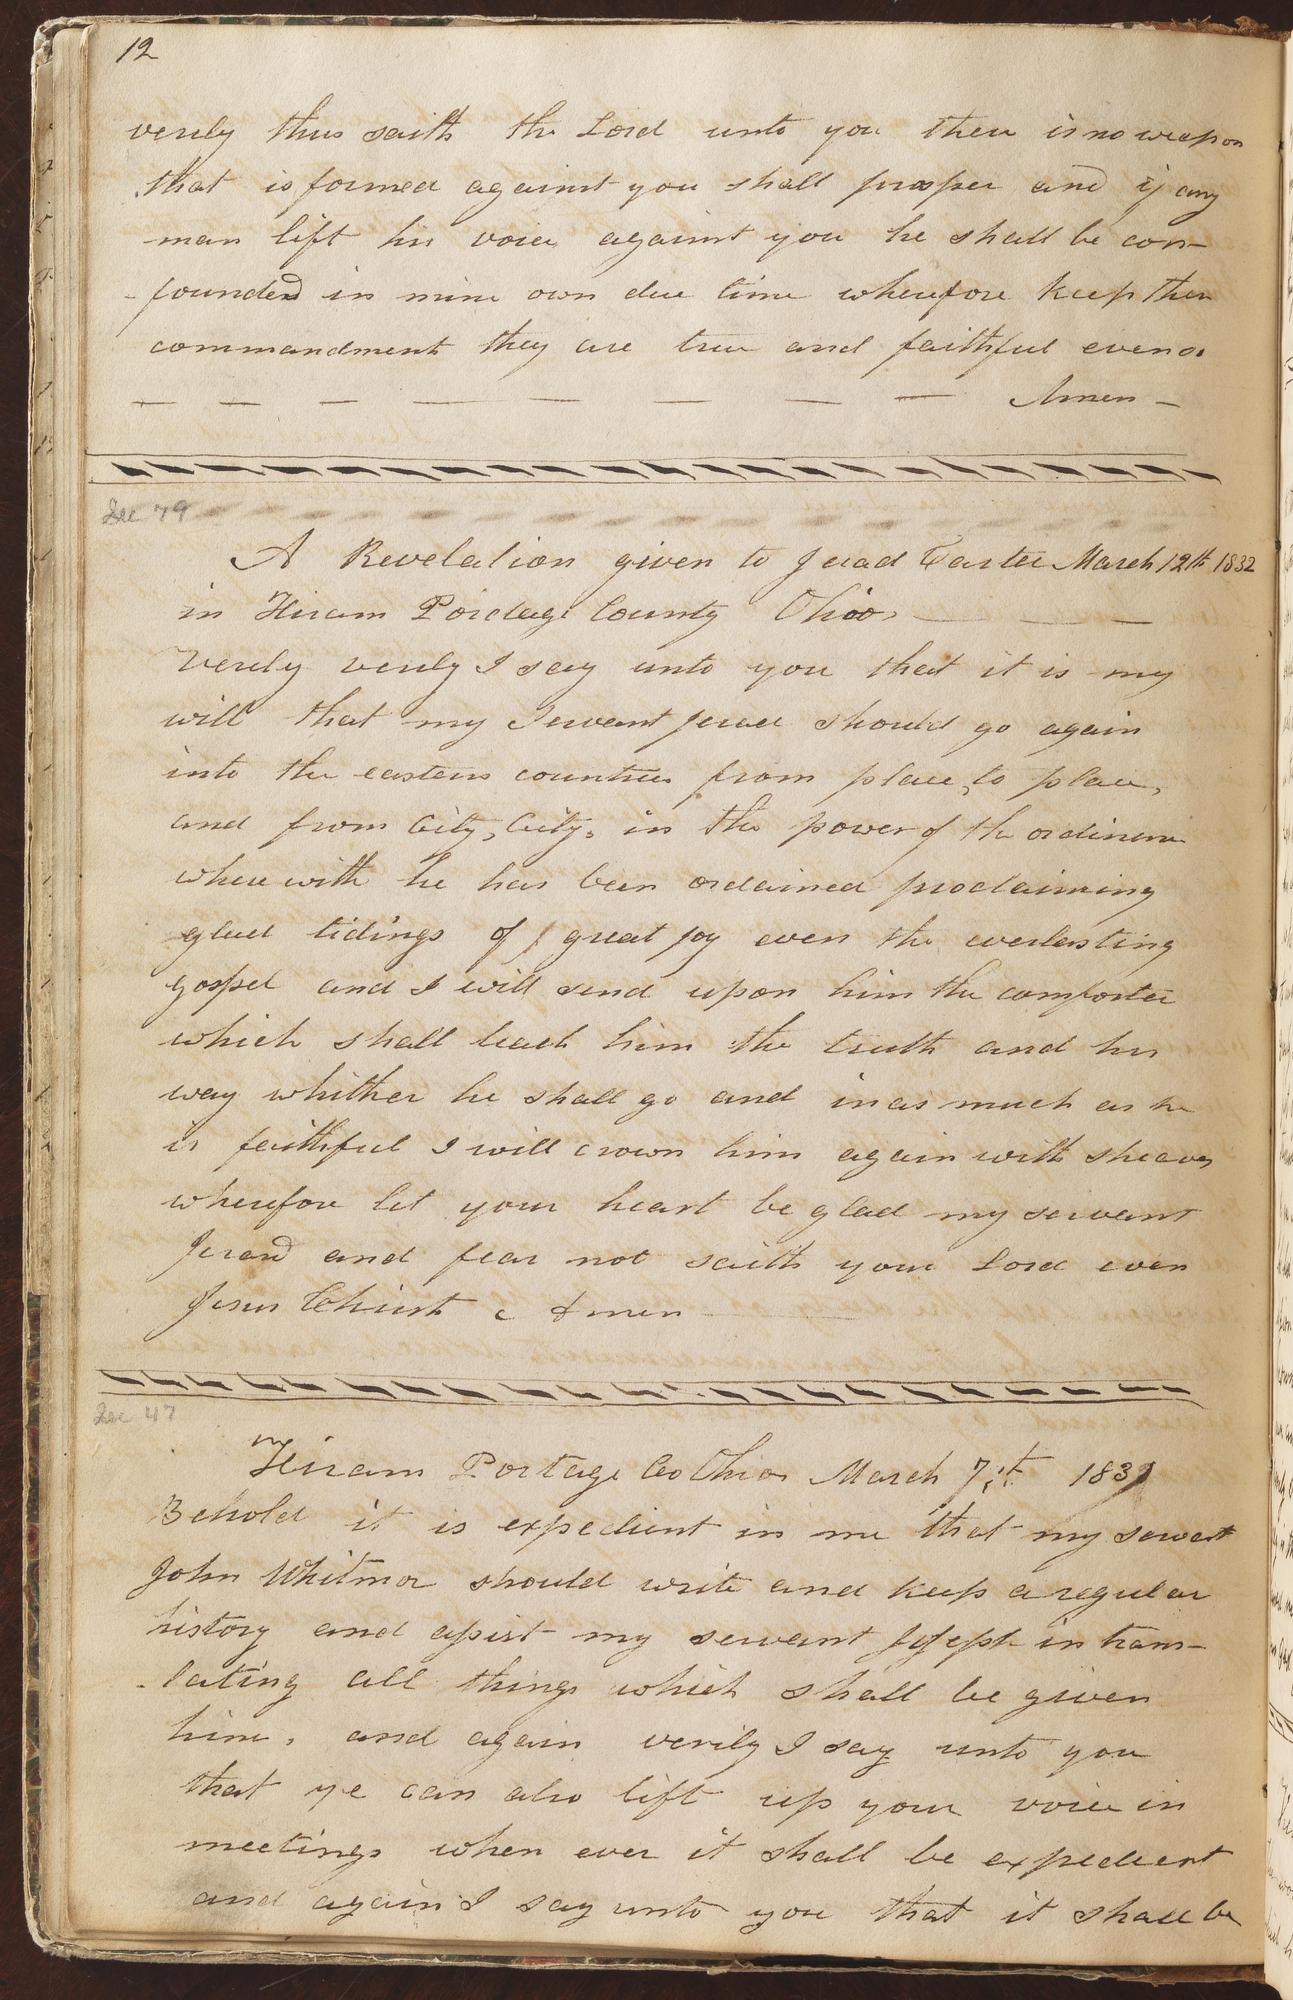 12
verily thus saith the Lord unto you there is no weapon
that is formed against you shall prosper and if any
man lift his voice against you he shall be con-
-founded in mine own due time wherefore keep then
commandment they are true and faithful even so
Amen -
Sec 79
A Revelation given to Jerad Carter March 12th 1832
in Hiram Pordage County Ohio
Verely verely I say unto you that it is my
will that my servant Jerad should go again
into the eastern countries from place to place,
and from City, City, in the power of the ordinence
where with he has been ordained proclaiming
glad tidings of great joy even the everlasting
gospel and I will send upon him the comforter
which shall teach him the truth and his
way whither he shall go and in as much as he
is faithful I will crown him again with sheaves
wherefore let your heart be glad my servant
Jerad and fear not saith your Lord even
Jesus Christ Amen
Sec 47
Hiram Portage Co Ohio March 7 183
Behold it is expedient in me that my servent
John Whitmor should write and keep a regular
history and assist my servant Joseph in trans-
-lating all things which shall be given
him, and again verily I say unto you
that ye can also lift up your voice in
meetings when ever it shall be expedient
and again I say unto you that it shall be